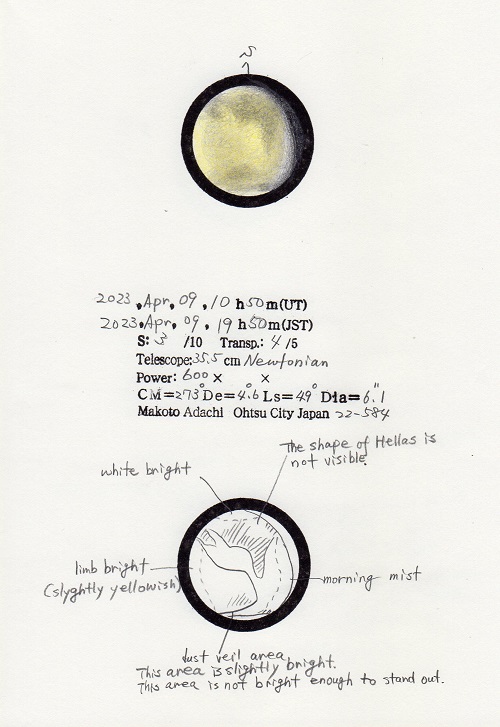 S
2023, Apr, 09, 10 h 50 m (UT)
2023, Apr, 09, 19 h 50 m (JST)
S: 3 /10 Transp.: 4 /5
Telescope: 35.5 cm Newtonian
Power: 600 × ×
CM=273° De=4.6° Ls=49° Dia=6.1"
Makoto Adachi Ohtsu City Japan 22-584
The shape of Hellas is
not visible.
white bright
limb bright
(slyghtly yellowish)
morning mist
dust veil area
This area is slightly bright.
This area is not bright enough to stand out.